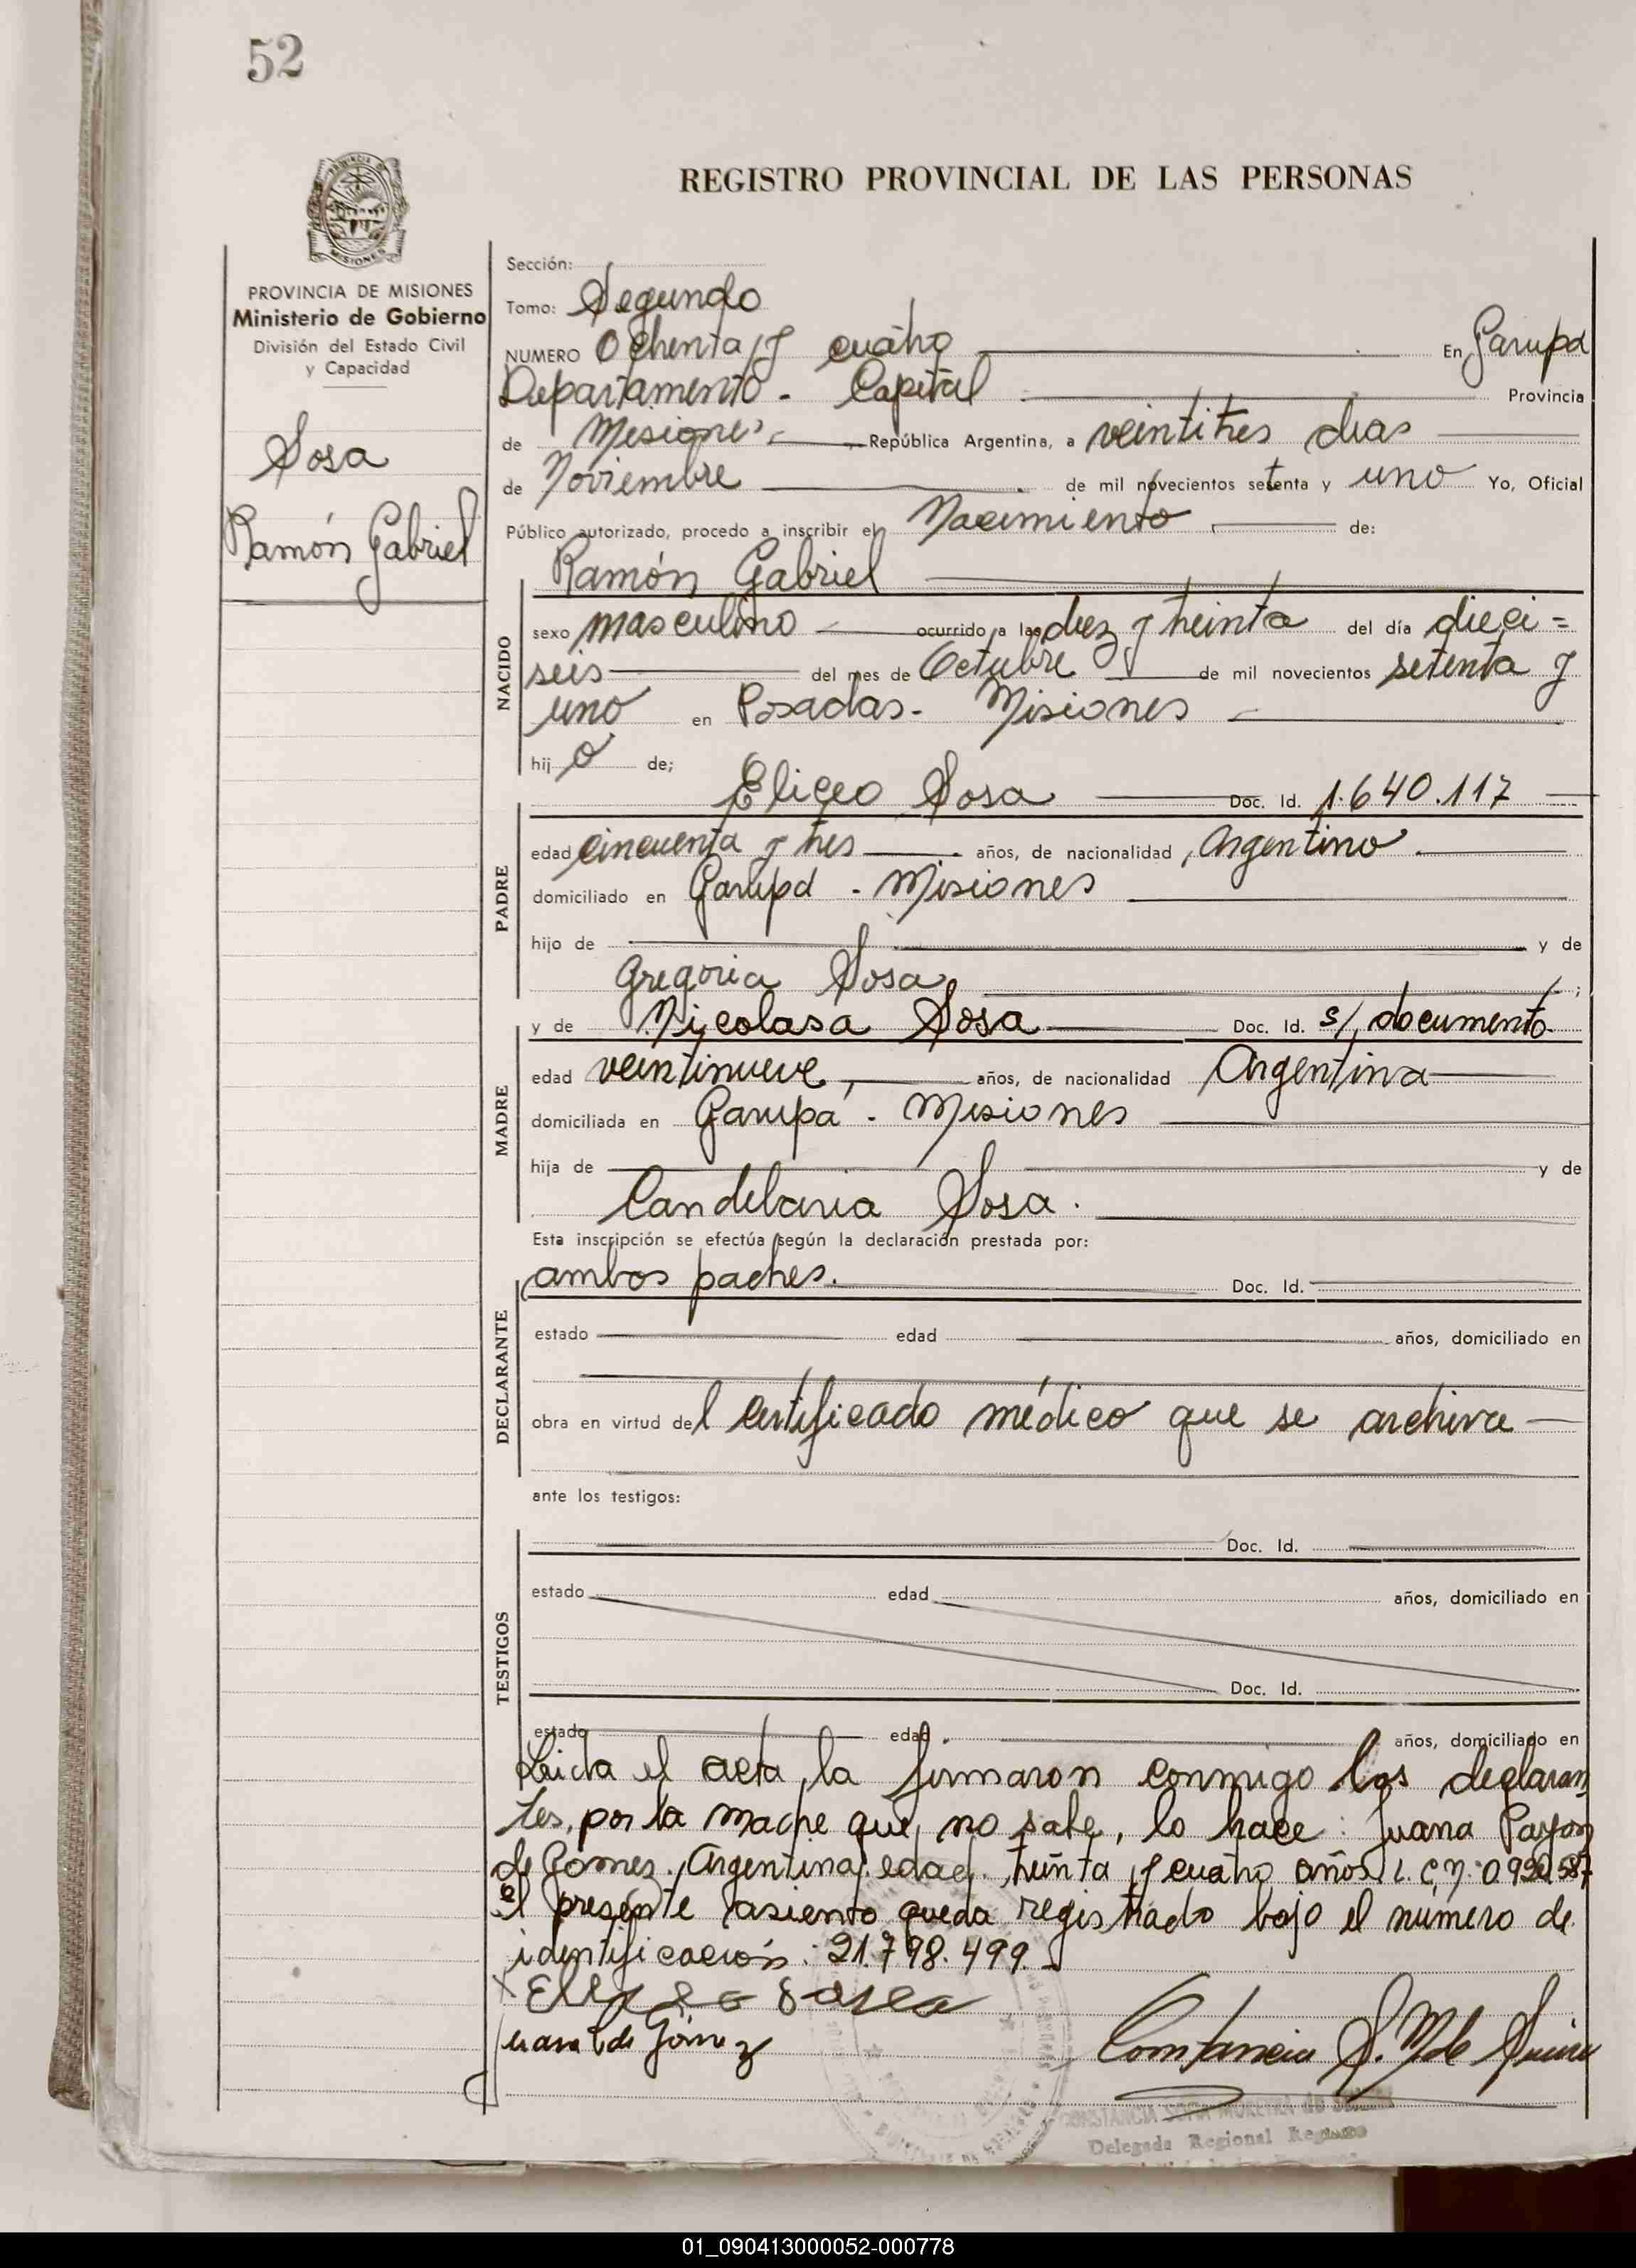 52
REGISTRO PROVINCIAL DE LAS PERSONAS
MISIONES
PROVINCIA DE MISIONES
Ministerio de Gobierno
División del Estado Civil
y Capacidad
Sosa
Ramón Gabriel
Sección:
Tomo: Segundo
NUMERO Ochenta y cuatro En Garupá
Departamento - Capital Provincia
de Misiones República Argentina, a veintitres dias
de Noviembre de mil novecientos setenta y uno Yo, Oficial
Público autorizado, procedo a inscribir el Nacimiento de:
Ramón Gabriel
NACIDO
sexo masculino ocurrido a las diez y treinta del día dieci =
seis del mes de Octubre de mil novecientos setenta y
uno en Posadas - Misiones
hijo de;
PADRE
Eliceo Sosa Doc. Id. 1.640.117
edad cincuenta y tres años, de nacionalidad Argentino
domiciliado en Garupá - Misiones
hijo de y de
Gregoria Sosa ;
MADRE
y de Nicolasa Sosa Doc. Id. s/ documento
edad veintinueve, años, de nacionalidad Argentina
domiciliada en Garupá - Misiones
hija de y de
Candelaria Sosa.
Esta inscripción se efectúa según la declaración prestada por:
DECLARANTE
ambos padres. Doc. Id.
estado edad años, domiciliado en
obra en virtud del certificado médico que se archiva
ante los testigos:
TESTIGOS
Doc. Id.
estado edad años, domiciliado en
Doc. Id.
estado edad años, domiciliado en
Leida el acta, la firmaron conmigo los declaran
tes, por la madre que no sabe, lo hace: Juana
de Gomes. Argentina, edad. treinta y cuatro años. L.C.N:
el presente asiento queda registrado bajo el número de
identificación: 21.798.499.
de Gómez
CONSTANCIA
Delegada Regional
01_090413000052-000778